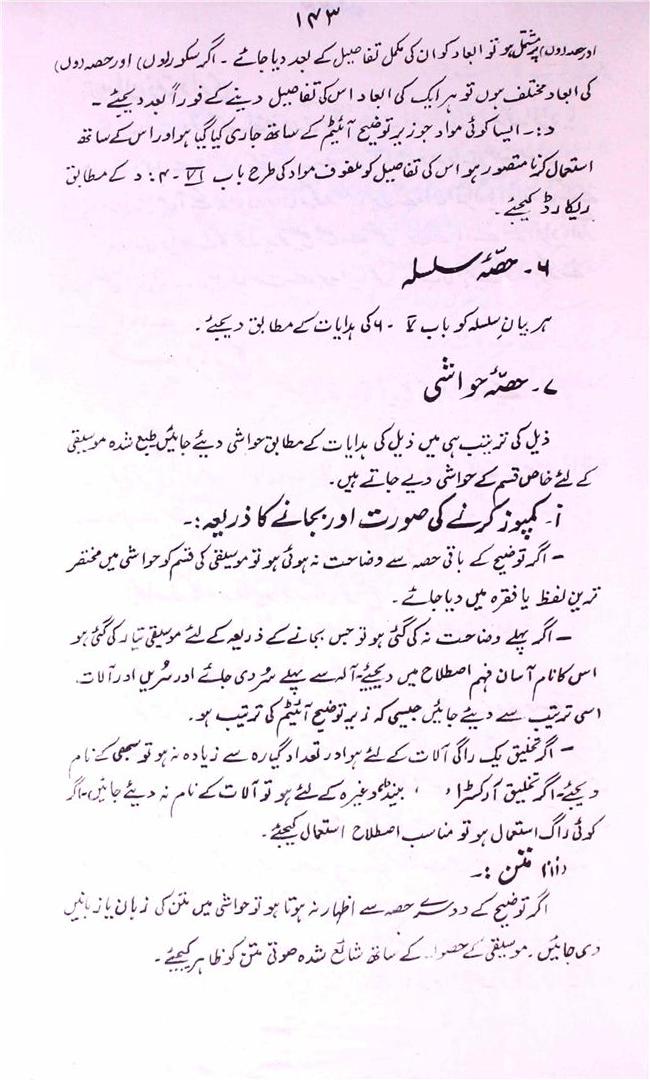 ۱۴۳
اور حصہ (وں) پر مشتمل ہو تو ابعاد کو ان کی مکمل تفاصیل کے بعد دیا جائے ۔ اگر سکور (وں) اور حصہ (وں)
کی ابعاد مختلف ہوں تو ہر ایک کی ابعاد اس کی تفاصیل دینے کے فوراً بعد دیجئے ۔
د :۔ ایسا کوئی مواد جو زیر توضیح آئیٹم کے ساتھ جاری کیا گیا ہو اور اس کے ساتھ
استعمال کرنا متصور ہو اس کی تفاصیل کو ملفوف مواد کی طرح باب VI ۔ ۴ : د کے مطابق
ریکارڈ کیجئے ۔
۶ ۔ حصّۂ سلسلہ
ہر بیان سلسلہ کو باب V ۔ ۶ کی ہدایات کے مطابق دیجئے ۔
۷ ۔ حصّۂ حواشی
ذیل کی ترتیب ہی میں ذیل کی ہدایات کے مطابق حواشی دیئے جائیں طبع شدہ موسیقی
کے لئے خاص قسم کے حواشی دیے جاتے ہیں ۔
i۔ کمپوز کرنے کی صورت اور بجانے کا ذریعہ :۔
– اگر توضیح کے باقی حصہ سے وضاحت نہ ہوئی ہو تو موسیقی کی قسم کو حواشی میں مختصر
ترین لفظ یا فقرہ میں دیا جائے ۔
– اگر پہلے وضاحت نہ کی گئی ہو تو جس بجانے کے ذریعہ کے لئے موسیقی تیار کی گئی ہو
اس کا نام آسان فہم اصطلاح میں دیجئے ۔ آلہ سے پہلے سُر دی جائے اور سُریں اور آلات
اسی ترتیب سے دیئے جائیں جیسی کہ زیر توضیح آئیٹم کی ترتیب ہو ۔
– اگر تخلیق یک راگی آلات کے لئے ہو اور تعداد گیارہ سے زیادہ نہ ہو تو سبھی کے نام
دیجئے ۔ اگر تخلیق آرکسٹرا ، بینڈ وغیرہ کے لئے ہو تو آلات کے نام نہ دیئے جائیں ۔ اگر
کوئی راگ استعمال ہو تو مناسب اصطلاح استعمال کیجئے ۔
متن :۔
اگر توضیح کے دوسرے حصہ سے اظہار نہ ہوتا ہو تو حواشی میں متن کی زبان یا زبانیں
دی جائیں ۔ موسیقی کے کے ساتھ شائع شدہ صوتی متن کو ظاہر کیجئے ۔